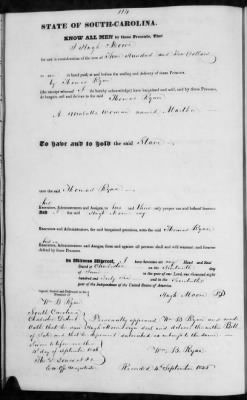 STATE OF SOUTH-CAROLINA.
KNOW ALL MEN by these Presents, That
I Hugh Moore
for and in consideration of the sum of Hundred and Dollars
to me in hand paid, at and before the sealing and delivery of these Presents,
by Thomas Ryan
(the receipt whereof I do hereby acknowledge) have bargained and sold, and by these Presents,
do bargain, sell and deliver to the said Thomas Ryan
A Mulatto Woman named Martha
To have and to hold the said Slave
unto the said Thomas Ryan
his
Executors, Administrators and Assigns, to his and their only proper use and behoof forever.
And I the said Hugh Moore my
Executors and Administrators, the said bargained premises, unto the said Thomas Ryan
his
Executors, Administrators and Assigns, from and against all persons shall and will warrant, and forever
defend by these Presents.
In Witness Whereof, I have hereunto set my Hand and Seal
Dated at Charleston on the
day of in the year of our Lord one thousand eight
hundred and and in the
year of the Independence of the United States of America.
Signed, Sealed and Delivered in the
Presence of
Hugh Moore
Wm B Ryan
South Carolina
Charleston District
Personally appeared Wm B Ryan and made
Oath that he saw Hugh Moore sign seal and deliver the within Bill
of Sale and that he
Sworn to before me
day of September
Wm. B. Ryan
Recorded September